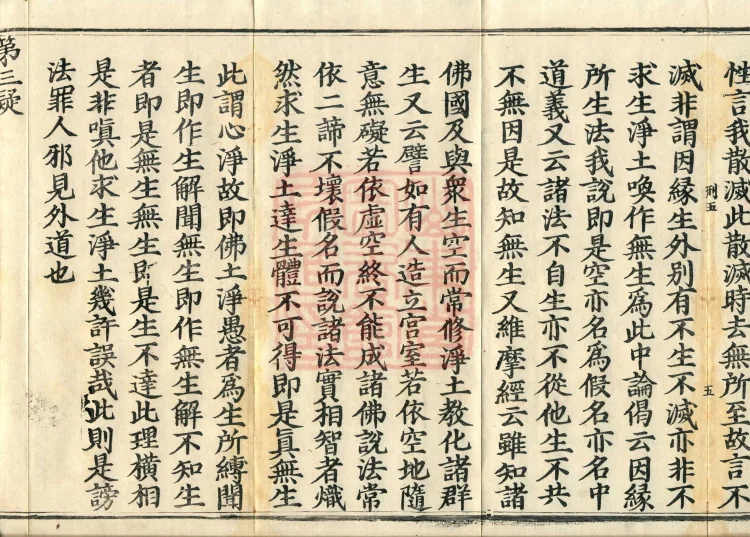 性言我散滅此散滅時去無所至故言不
刑五
五
滅非謂因緣生外別有不生不滅亦非不
求生淨土喚作無生為此中論偈云因緣
所生法我說即是空亦名為假名亦名中
道義又云諸法不自生亦不從他生不共
不無因是故知無生又維摩經云雖知諸
佛國及與衆生空而常修淨土教化諸群
生又云譬如有人造立宮室若依空地隨
意無礙若依虛空終不能成諸佛說法常
依二諦不壞假名而說諸法實相智者熾
然求生淨土達生體不可得即是真無生
此謂心淨故即佛土淨愚者為生所縛聞
生即作生解聞無生即作無生解不知生
者即是無生無生即是生不達此理橫相
是非嗔他求生淨土幾許誤哉此則是謗
法罪人邪見外道也
第三疑